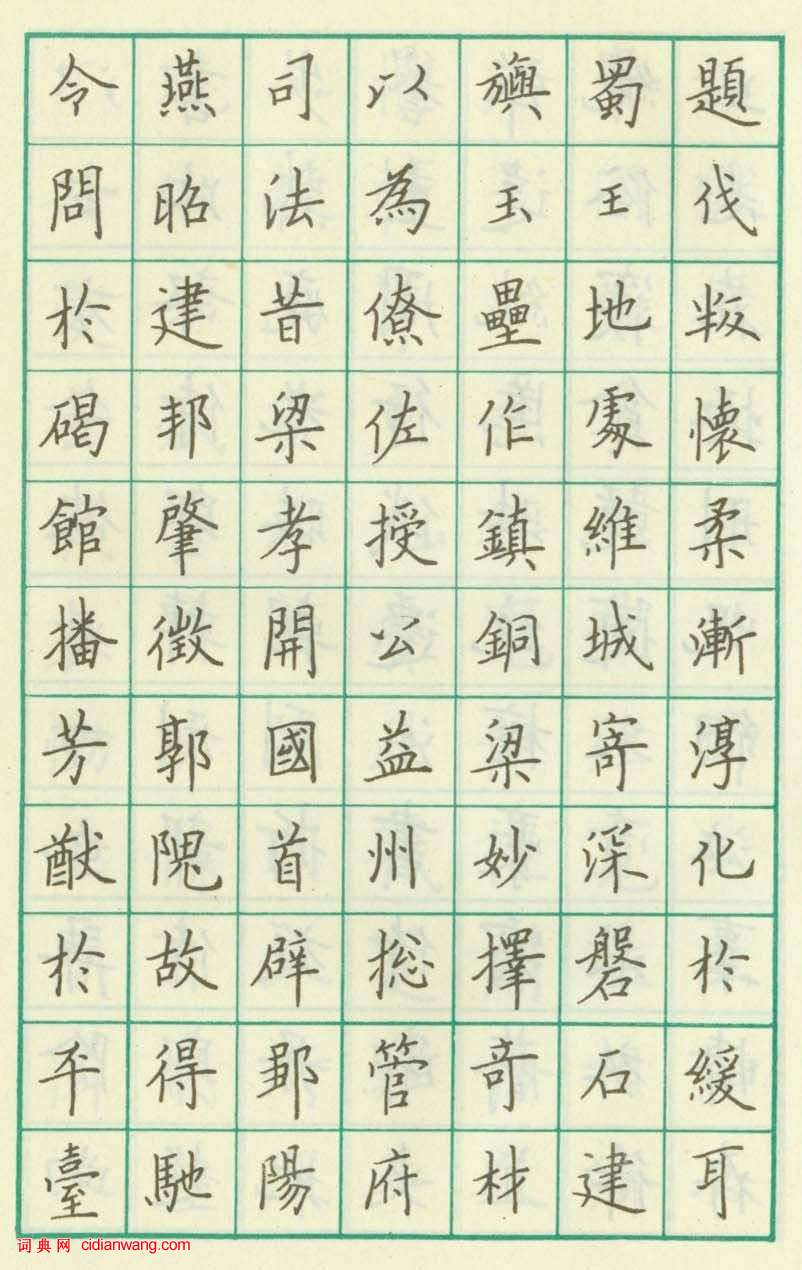 題伐叛懷柔漸淳化於緩耳
蜀王地處維城寄深磐石建
旟玉壘作鎮銅梁妙擇竒材
以為僚佐授公益州捴管府
司法昔梁孝開國首辟鄒陽
燕昭建邦肇徵郭隗故得馳
令問於碣館播芳猷於平臺
词典网 cidianwang.com